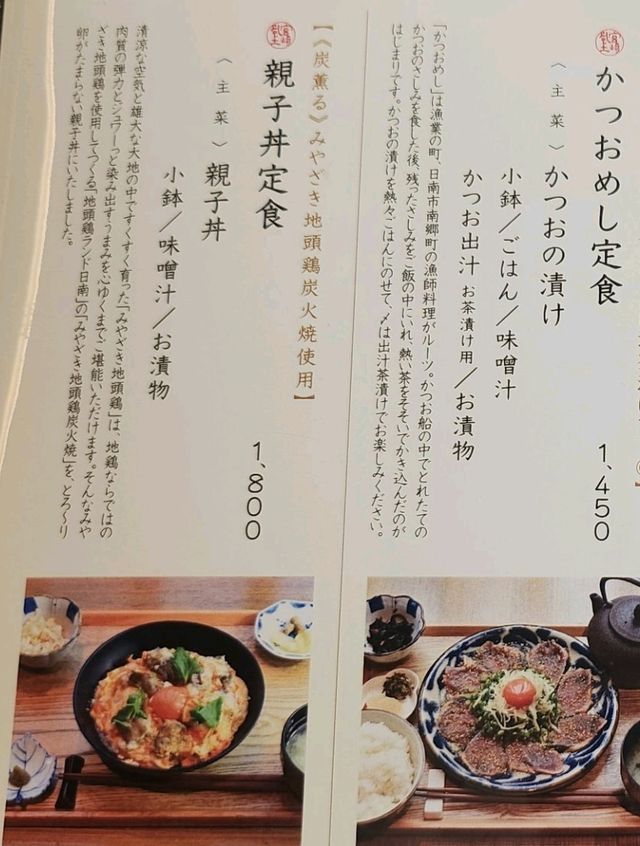 かつおめし定食
〈主菜〉かつおの漬け
小鉢／ごはん／味噌汁
かつお出汁 お茶漬け用／お漬物
1,450
「かつおめし」は漁業の町、日南市南郷町の漁師料理がルーツ。かつお船の中でとれたての
かつおのさしみを食した後、残ったさしみをご飯の中にいれ、熱い茶をそそいでかき込んだのが
はじまりです。かつおの漬けを熱々ごはんにのせて、〆は出汁茶漬けでお楽しみください。
【《炭薫る》みやざき地頭鶏炭火焼使用】
親子丼定食
〈主菜〉親子丼
小鉢／味噌汁／お漬物
1,800
清涼な空気と雄大な大地の中ですくすく育った「みやざき地頭鶏」は、地鶏ならではの
肉質の弾力とジュワーっと染み出すうまみを心ゆくまでご堪能いただけます。そんなみや
ざき地頭鶏を使用してつくる「地頭鶏ランド日南」の「みやざき地頭鶏炭火焼」を、とろ〜り
卵がたまらない親子丼にいたしました。